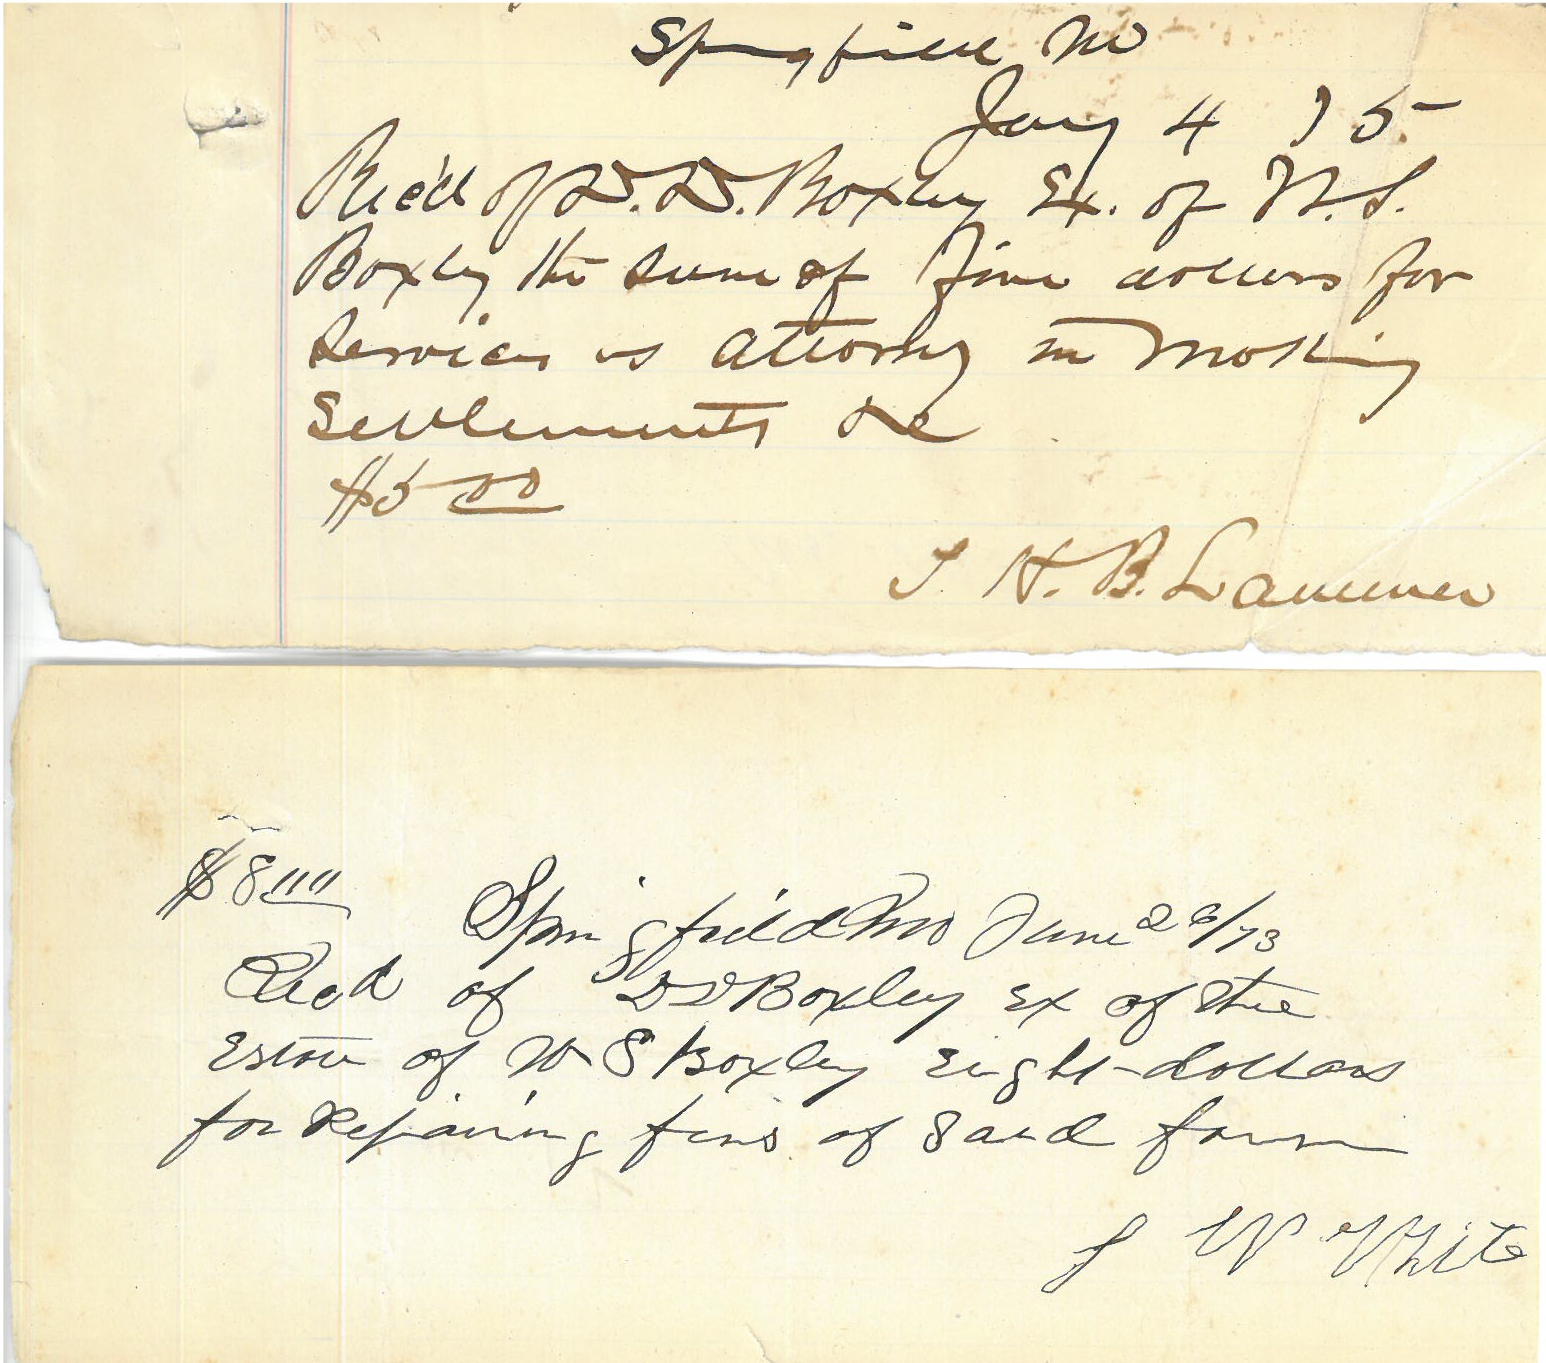 Springfield Mo
Jany 4 75
Rec'd of D. D. Boxley Ex. of W. S.
Boxley the sum of Five dollars for
services as attorney in making
settlements &c
$5 00
J. H. B. Lawmer
$8.00
Springfield Mo June 26/73
Recd of D D Boxley Ex of the
Estate of W S Boxley Eight dollars
for Repairing fens of Said farm
J W White